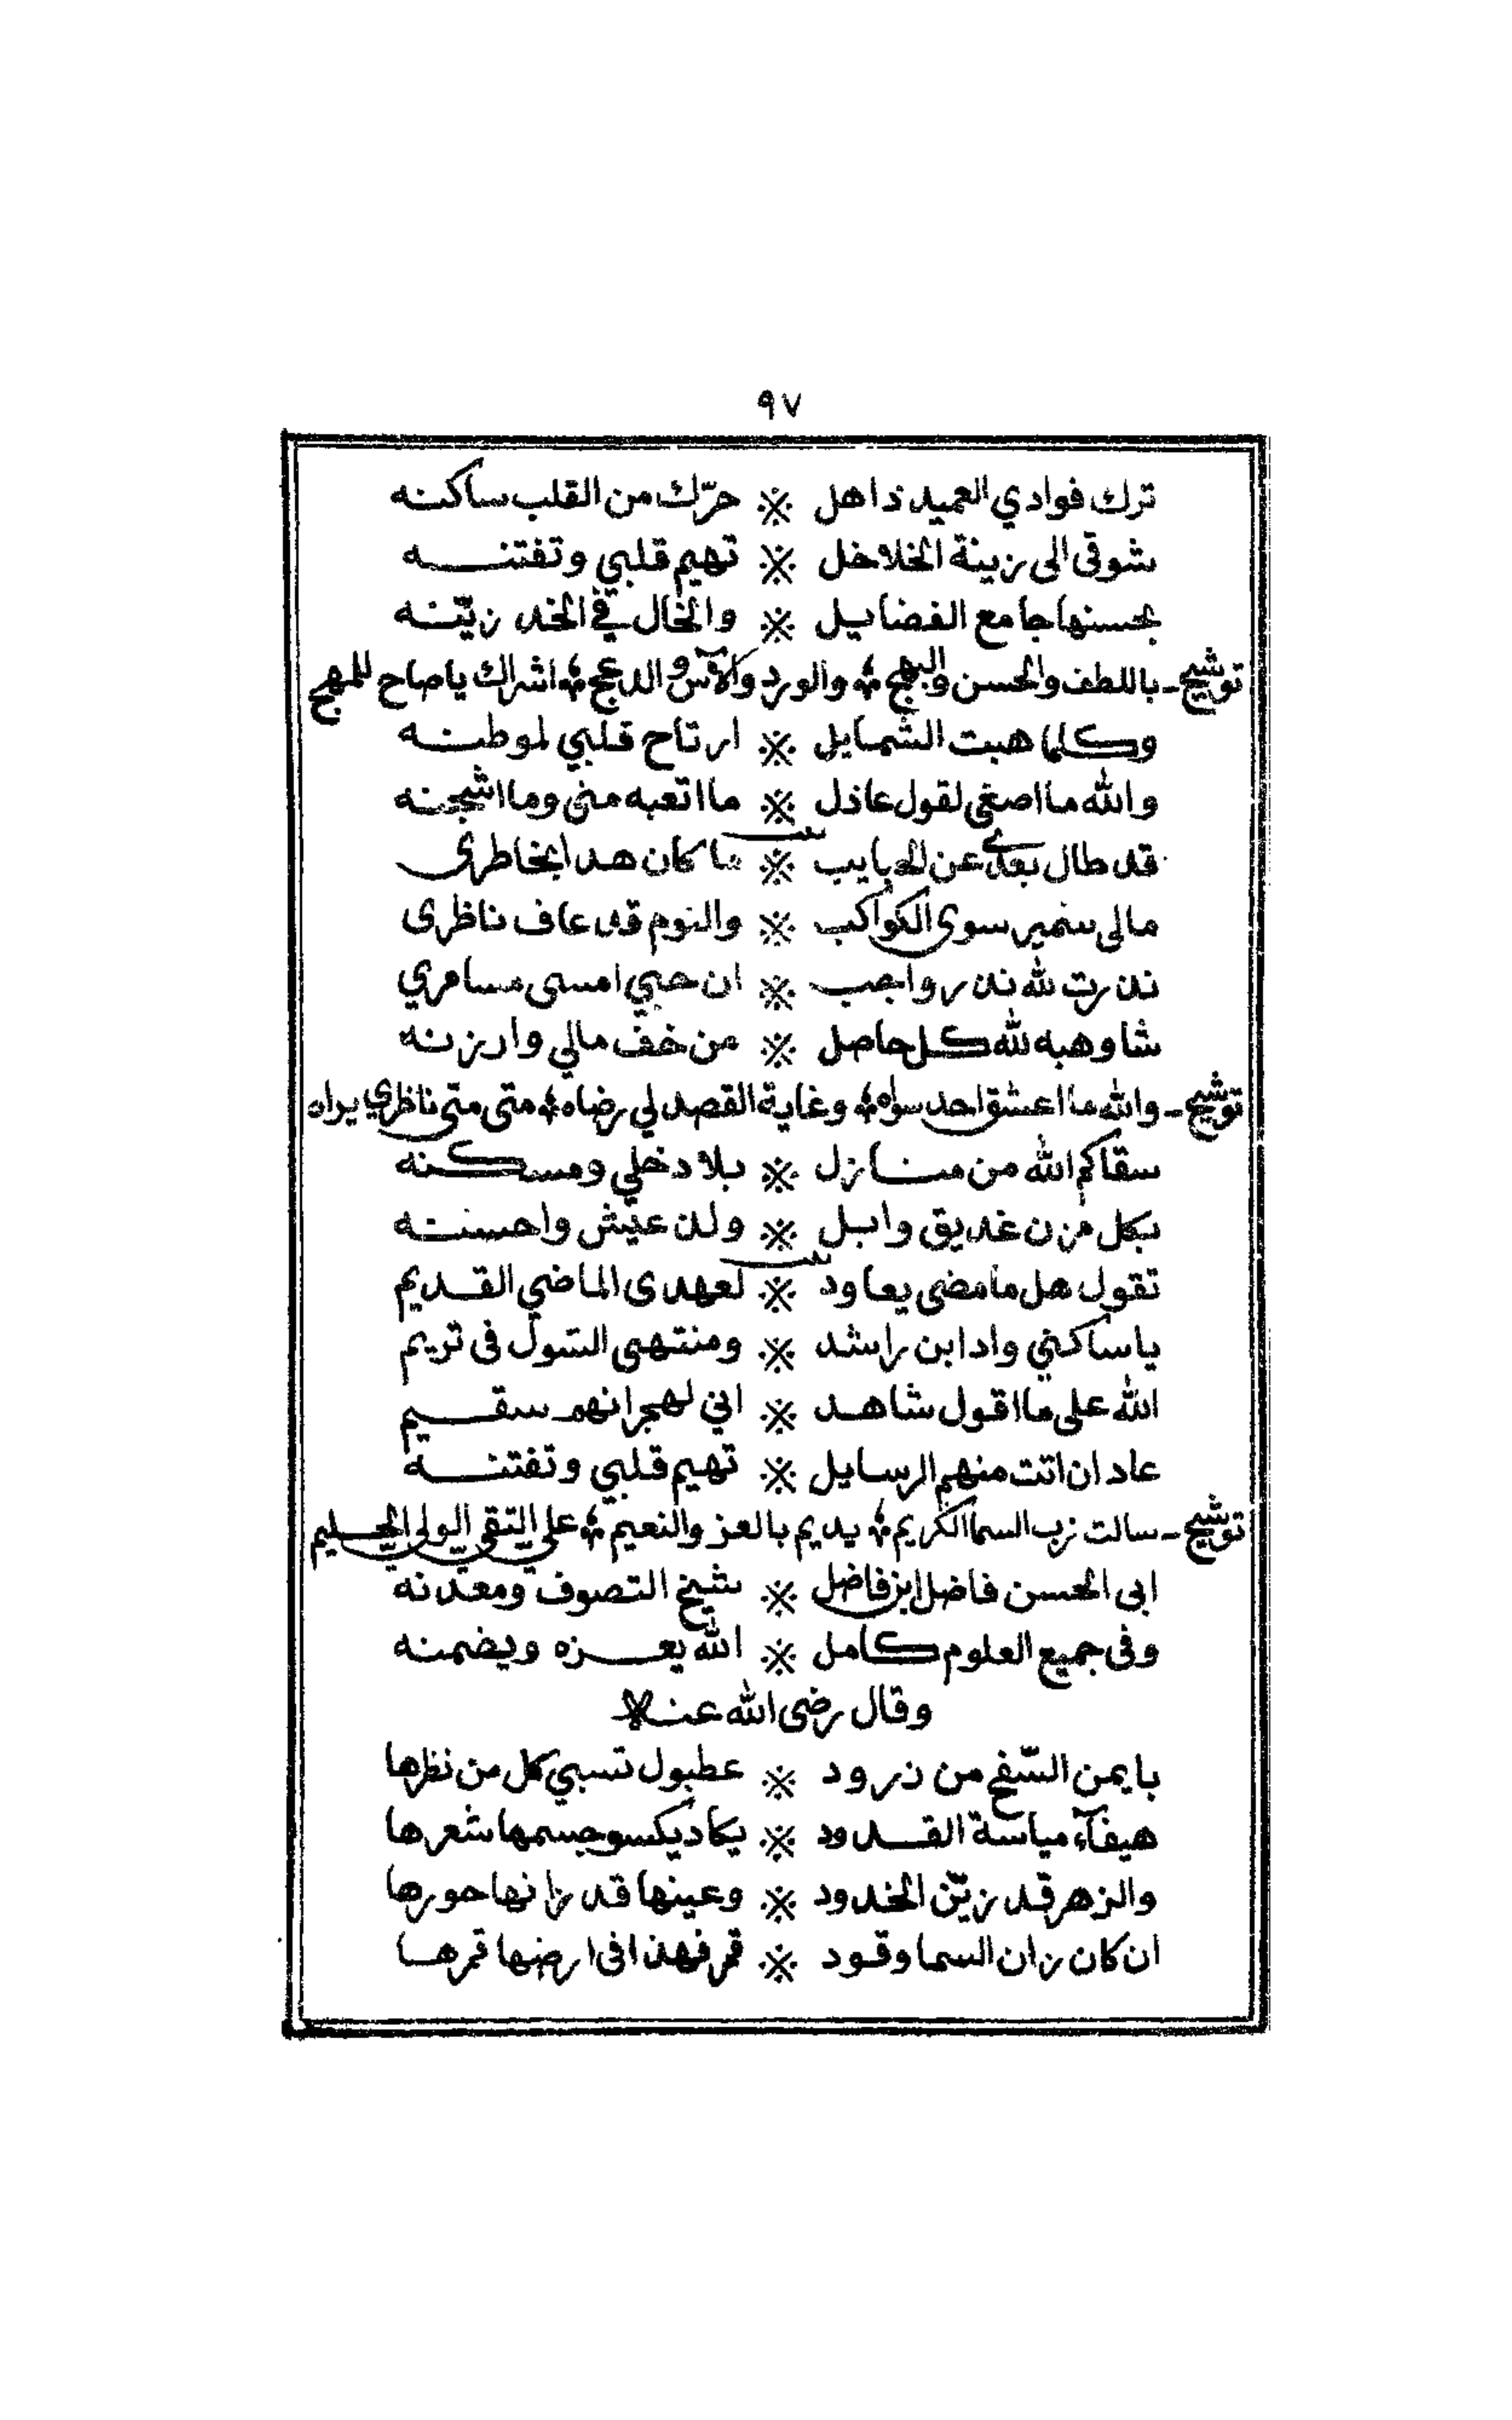 ٩٧
ترك فوادي العميد ذاهل ※ حرّك من القلب ساكنه
شوقى الى زينة الخلاخل ※ تهيم قلبي وتفتنه
بحسنها جامع الفضايل ※ والخال في الخد زيّنه
توشيح - باللطف والحسن والبهج ؛ والورد والآس والدعج ؛ اشراك ياصاح للمهج
وكلما هبت الشمايل ※ ارتاح قلبي لموطنه
والله ما اصغى لقول عاذل ※ ما اتعبه منى وما اشجنه
بيت
قد طال بعدى عن الحبايب ※ ما كان هدا بخاطرى
مالى سمير سوى الكواكب ※ والنوم قد عاف ناظرى
ندرت لله ندر واجب ※ ان حبي امسى مسامري
شاوهبه لله كل حاصل ※ من خف مالي وارزنه
توشيح - والله ما اعشق احد سواه ؛ وغاية القصد لي رضاه ؛ متى متى ناظري يراه
سقاكم الله من منازل ※ بلاد خلي ومسكنه
بكل مزن غديق وابل ※ ولذ عيش واحسنه
بيت
تقول هل مامضى يعاود ※ لعهدى الماضي القديم
ياساكني وادا بن راشد ※ ومنتهى السّول فى تريم
الله على ما اقول شاهد ※ اني لهجرانهم سقيم
عاد ان اتت منهم الرسايل ※ تهيم قلبي وتفتنه
توشيح - سالت رب السما الكريم ؛ يديم بالعز والنعيم ؛ على التقى الولى الحليم
ابى الحسن فاضل ابن فاضل ※ شيخ التصوف ومعدنه
وفى جميع العلوم كامل ※ الله يعزه ويضمنه
وقال رضى الله عنه
بايمن السّفح من زرود ※ عطبول تسبي كل من نظرها
هيفآء مياسة القدود ※ يكاد يكسو جسمها شعرها
والزهر قد زيّن الخدود ※ وعينها قد زانها حورها
ان كان زان السما وقود ※ قمر فهذا فى ارضها قمرها